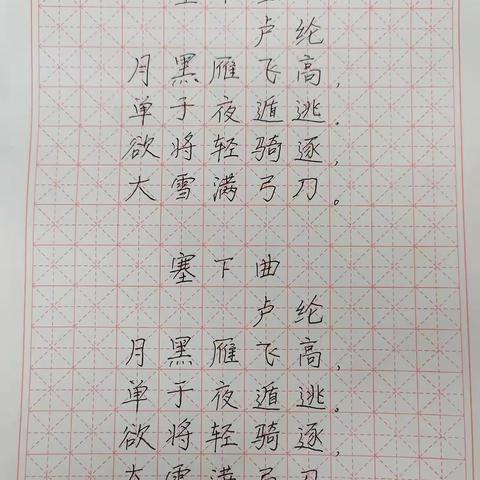 卢纶
月黑雁飞高,
单于夜遁逃.
欲将轻骑逐,
大雪满弓刀。
塞下曲
卢纶
月黑雁飞高,
单于夜遁逃。
欲将轻骑逐,
大雪满弓刀